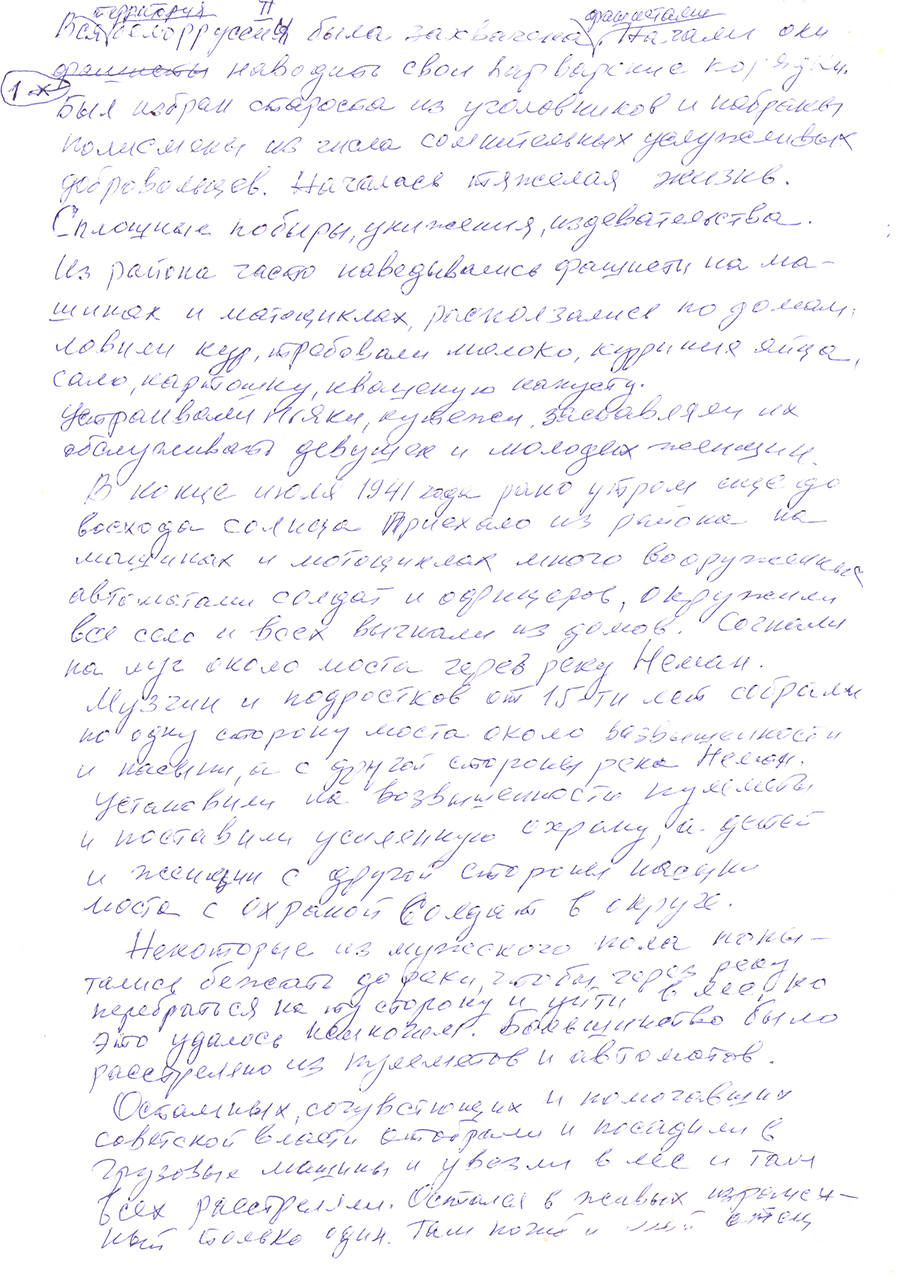 территория фашистами
Вся Белоруссия была захвачена. Начали они
фашисты наводить свои варварские порядки.
1 х
Был избран староста из уголовников и набраны
полисмены из числа сомнительных услужливых
добровольцев. Началась тяжелая жизнь.
Сплошные поборы, унижения, издевательства.
Из района часто наведывались фашисты на ма-
шинах и мотоциклах, расползались по домам,
ловили кур, требовали молоко, куриные яйца,
сало, картошку, квашеную капусту.
Устраивали пьяки, кутежи, заставляли их
обслуживать девушек и молодых женщин.
В конце июля 1941 года рано утром еще до
восхода солнца приехало из района на
машинах и мотоциклах много вооруженных
автоматами солдат и офицеров, окружили
все село и всех выгнали из домов. Согнали
на луг около моста через реку Неман.
Мужчин и подростков от 15-ти лет собрали
по одну сторону моста около возвышенности
и насыпи, а с другой стороны река Неман.
Установили на возвышенности пулеметы
и поставили усиленную охрану, а детей
и женщин с другой стороны насыпи
моста с охраной солдат в округе.
Некоторые из мужского пола попы-
тались бежать до реки, чтобы через реку
перебраться на ту сторону и уйти в лес, но
это удалось немногим. Большинство было
расстреляно из пулеметов и автоматов.
Остальных, сочувстующих и помогавших
советской власти отобрали и посадили в
грузовые машины и увезли в лес и там
всех расстреляли. Остался в живых изранен-
ный только один. Там погиб и мой отец